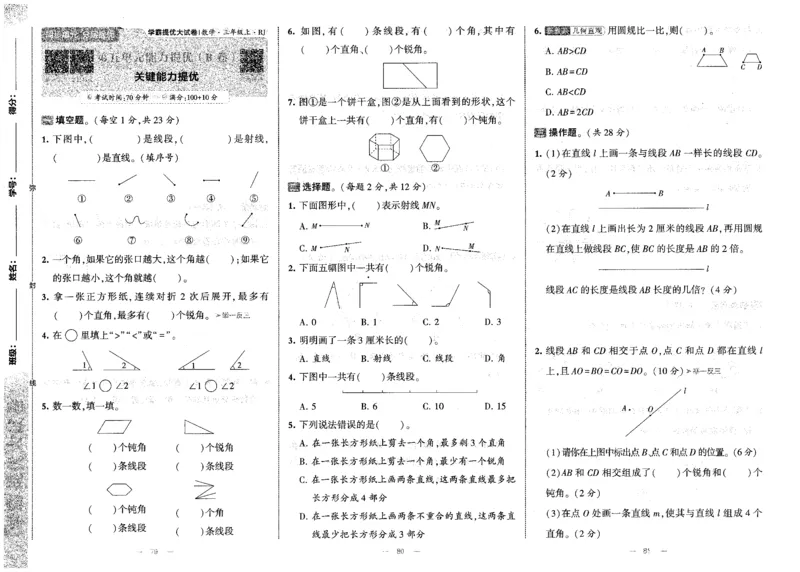 学霸提优大试卷|数学·三年级上·RJ
第五单元能力提优(B卷)
关键能力提优
考试时间:70分钟 满分:100+10分
得分:
学号:
姓名:
班级:
弥
封
线
一、填空题。(每空1分,共23分)
1. 下图中,( )是线段,( )是射线,
( )是直线。(填序号)
① ② ③ ④ ⑤
⑥ ⑦ ⑧ ⑨
2. 一个角,如果它的张口越大,这个角越( );如果它
的张口越小,这个角就越( )。
3. 拿一张正方形纸,连续对折2次后展开,最多有
( )个直角,最多有( )个锐角。➤举一反三
4. 在○里填上“>”“<”或“=”。
1 2 1 2
∠1○∠2 ∠1○∠2
5. 数一数,填一填。
( )个钝角 ( )个锐角
( )条线段 ( )条线段
( )个钝角 ( )个角
( )条线段 ( )条线段
— 79 —
6. 如图,有( )条线段,有( )个角,其中有
( )个直角、( )个锐角。
7. 图①是一个饼干盒,图②是从上面看到的形状,这个
饼干盒上一共有( )个直角,有( )个钝角。
① ②
二、选择题。(每题2分,共12分)
1. 下面图形中,( )表示射线MN。
A. M N B. M N
C. M N D. N M
2. 下面五幅图中一共有( )个锐角。
A. 0 B. 1 C. 2 D. 3
3. 明明画了一条3厘米长的( )。
A. 直线 B. 射线 C. 线段 D. 角
4. 下图中一共有( )条线段。
A. 5 B. 6 C. 10 D. 15
5. 下列说法错误的是( )。
A. 在一张长方形纸上剪去一个角,最多剩3个直角
B. 在一张长方形纸上剪去一个角,最少有一个锐角
C. 在一张长方形纸上画两条直线,这两条直线最多把
长方形分成4部分
D. 在一张长方形纸上画两条不重合的直线,这两条直
线最少把长方形分成3部分
— 80 —
6. 几何直观 用圆规比一比,则( )。
A. AB>CD
B. AB=CD
C. AB<CD
D. AB=2CD
A B
C D
三、操作题。(共28分)
1. (1)在直线l上画一条与线段AB一样长的线段CD。
(2分)
A B
l
(2)在直线l上画出长为2厘米的线段AB,再用圆规
在直线上做线段BC,使BC的长度是AB的2倍。
l
线段AC的长度是线段AB长度的几倍?(4分)
2. 线段AB和CD相交于点O,点C和点D都在直线l
上,且AO=BO=CO=DO。(10分)➤举一反三
l
A O
(1)请你在上图中标出点B、点C和点D的位置。(6分)
(2)AB和CD相交组成了( )个锐角和( )个
钝角。(2分)
(3)在点O处画一条直线m,使其与直线l组成4个
直角。(2分)
— 81 —